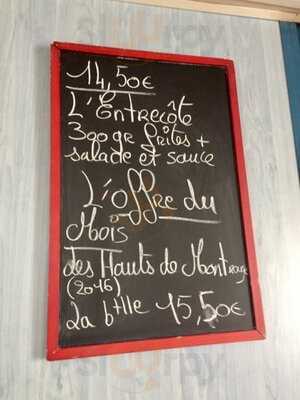 14,50€
L'Entrecôte
300gr frites +
salade et sauce
L'offre du
Mois
des Hauts de Montrouge
(2016)
La btlle 15,50€